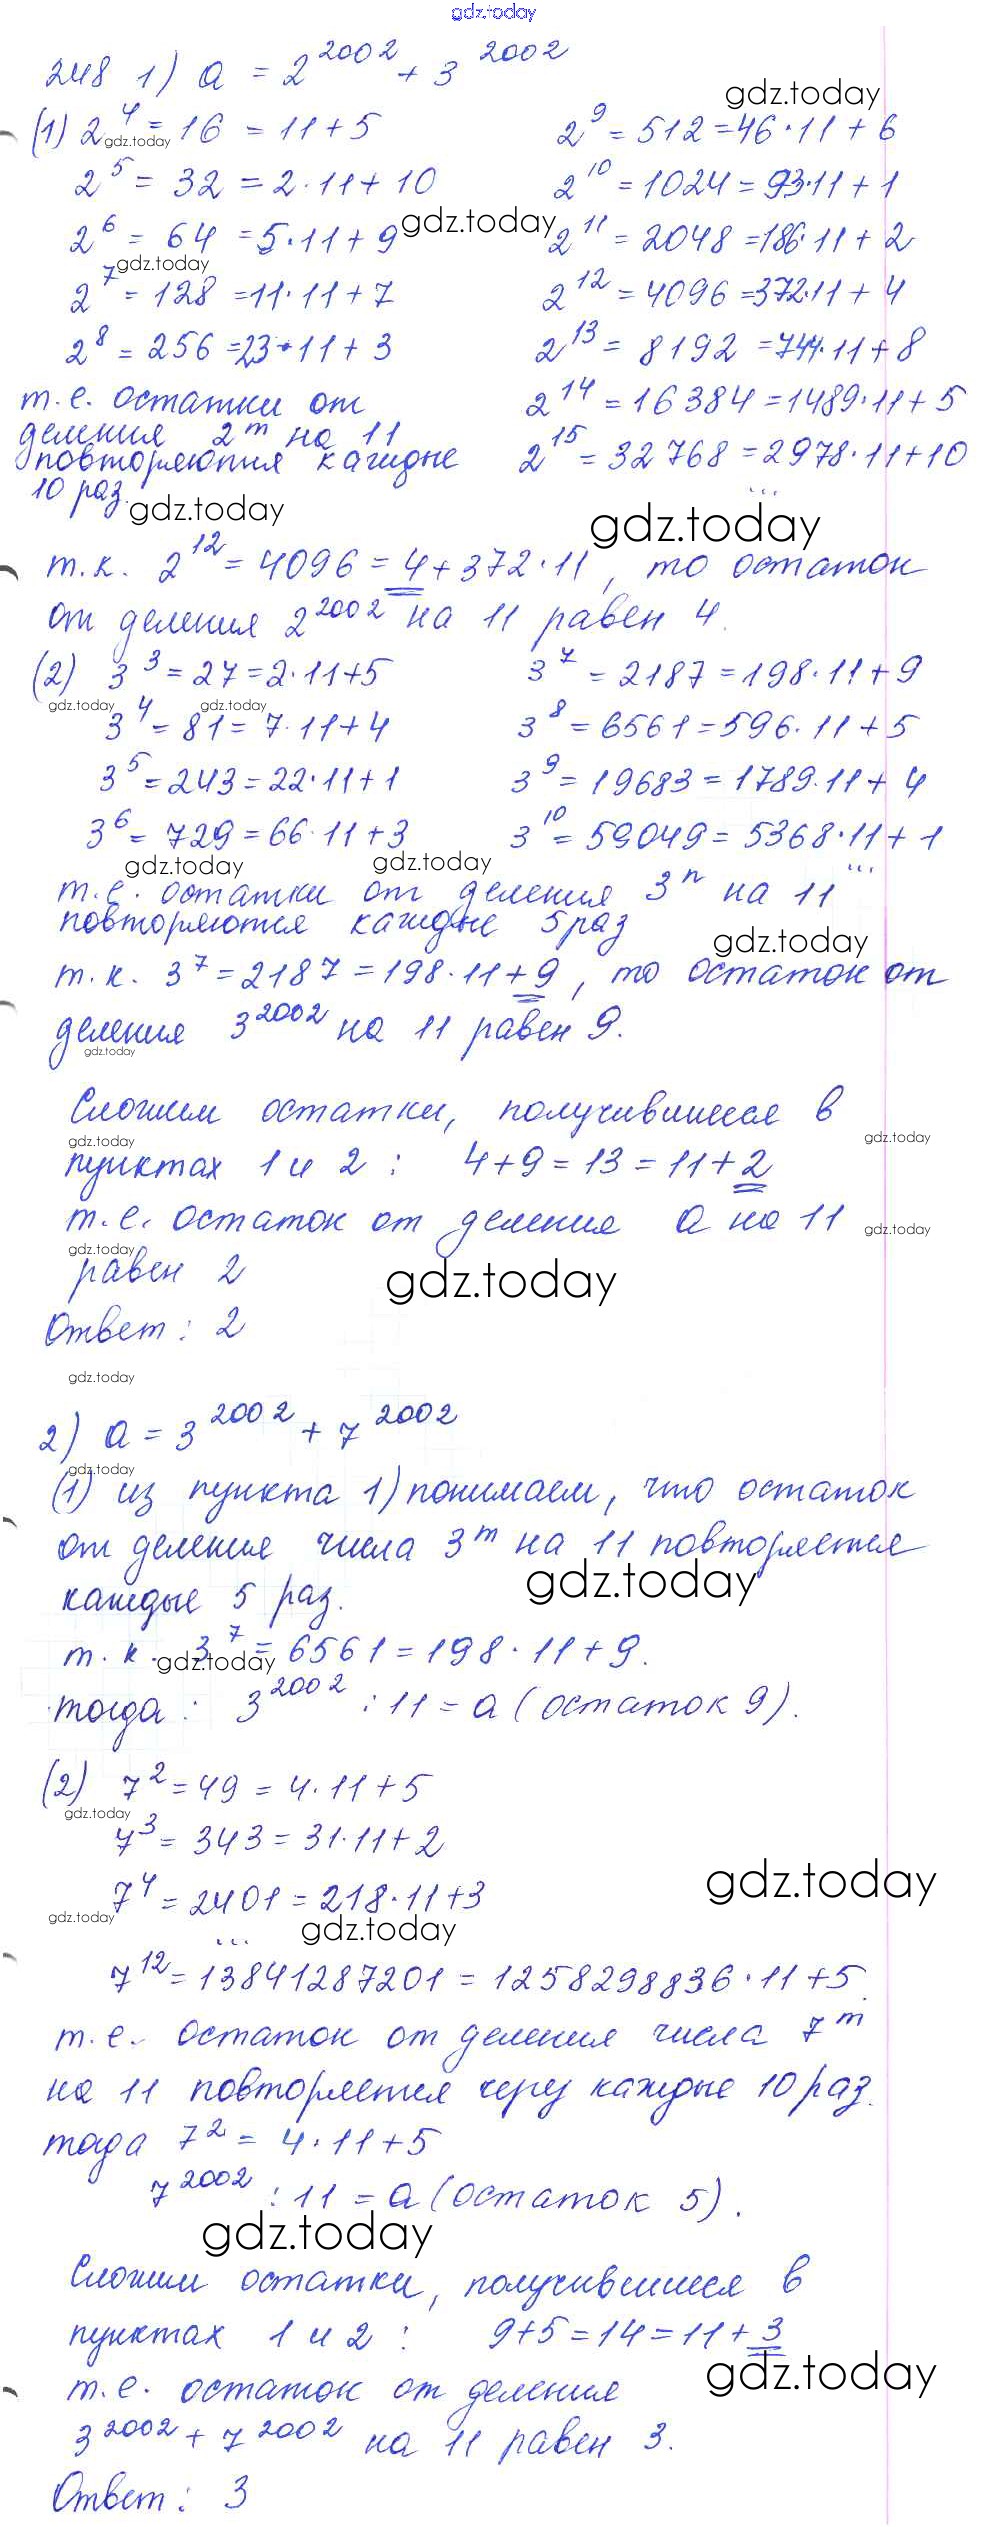 gdz.today
248 1) a = 2^2002 + 3^2002
gdz.today
(1) 2^4 = 16 = 11 + 5
gdz.today
2^5 = 32 = 2·11 + 10
2^6 = 64 = 5·11 + 9
gdz.today
gdz.today
2^7 = 128 = 11·11 + 7
2^8 = 256 = 23·11 + 3
2^9 = 512 = 46·11 + 6
2^10 = 1024 = 93·11 + 1
2^11 = 2048 = 186·11 + 2
2^12 = 4096 = 372·11 + 4
2^13 = 8192 = 744·11 + 8
2^14 = 16 384 = 1489·11 + 5
2^15 = 32 768 = 2978·11 + 10
...
т.е. остатки от
деления 2^m на 11
повторяются каждые
10 раз.
gdz.today
gdz.today
т.к. 2^12 = 4096 = 4 + 372·11, то остаток
от деления 2^2002 на 11 равен 4.
(2) 3^3 = 27 = 2·11 + 5
gdz.today gdz.today
3^4 = 81 = 7·11 + 4
3^5 = 243 = 22·11 + 1
3^6 = 729 = 66·11 + 3
3^7 = 2187 = 198·11 + 9
3^8 = 6561 = 596·11 + 5
3^9 = 19683 = 1789·11 + 4
3^10 = 59049 = 5368·11 + 1
...
gdz.today gdz.today
т.е. остатки от деления 3^n на 11
повторяются каждые 5 раз
gdz.today
т.к. 3^7 = 2187 = 198·11 + 9, то остаток от
деления 3^2002 на 11 равен 9.
gdz.today
Сложим остатки, получившиеся в
gdz.today gdz.today
пунктах 1 и 2 : 4 + 9 = 13 = 11 + 2
т.е. остаток от деления a на 11
gdz.today gdz.today
равен 2
gdz.today
Ответ : 2
gdz.today
2) a = 3^2002 + 7^2002
gdz.today
(1) из пункта 1) понимаем, что остаток
от деления числа 3^m на 11 повторяется
gdz.today
каждые 5 раз.
т.к. 3^7 = 6561 = 198·11 + 9.
gdz.today
тогда : 3^2002 : 11 = a (остаток 9).
(2) 7^2 = 49 = 4·11 + 5
gdz.today
7^3 = 343 = 31·11 + 2
gdz.today
7^4 = 2401 = 218·11 + 3
gdz.today gdz.today
...
7^12 = 13841287201 = 1258298836·11 + 5.
т.е. остаток от деления числа 7^m
на 11 повторяется через каждые 10 раз.
тогда 7^2 = 4·11 + 5
7^2002 : 11 = a (остаток 5).
gdz.today
Сложим остатки, получившиеся в
пунктах 1 и 2 : 9 + 5 = 14 = 11 + 3
gdz.today
т.е. остаток от деления
3^2002 + 7^2002 на 11 равен 3.
Ответ : 3